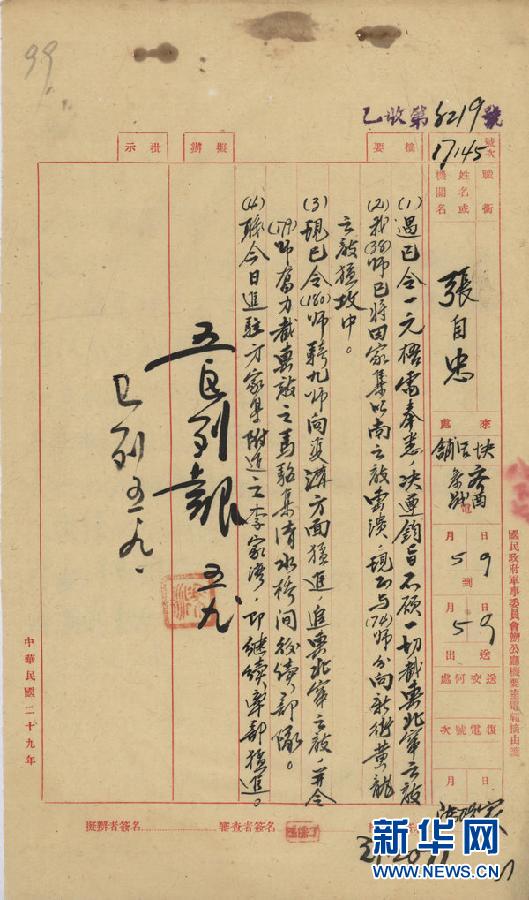 99
乙收第 8219 號
號次 17145
職銜
姓名或機關名
張自忠
來處
快活鋪
電
月 5 日 9
到
月 5 日 9
送出
送交何處
復電號次
月 日
摘要
擬辦
批示
(1) 遇巳令一元梧電奉悉，決遵鈞旨不顧一切截擊北竄之敵
(2) 我(38)師已將田家集以南之敵擊潰，現正與(74)師分向新街黃龍
之敵猛攻中。
(3) 現已令(180)師騎九師向 方面猛進，追擊北竄之敵，并令
(179)師奮力截擊敵之馬 集清水橋間後續部隊。
(4) 職今日進駐方家集附近之李家灣，即繼續率部猛進。
列報 五九
已列 五、九、
國民政府軍事委員會辦公廳機要室電報摘由箋
中華民國二十九年
擬辦者簽名
審查者簽名
新华网
WWW.NEWS.CN